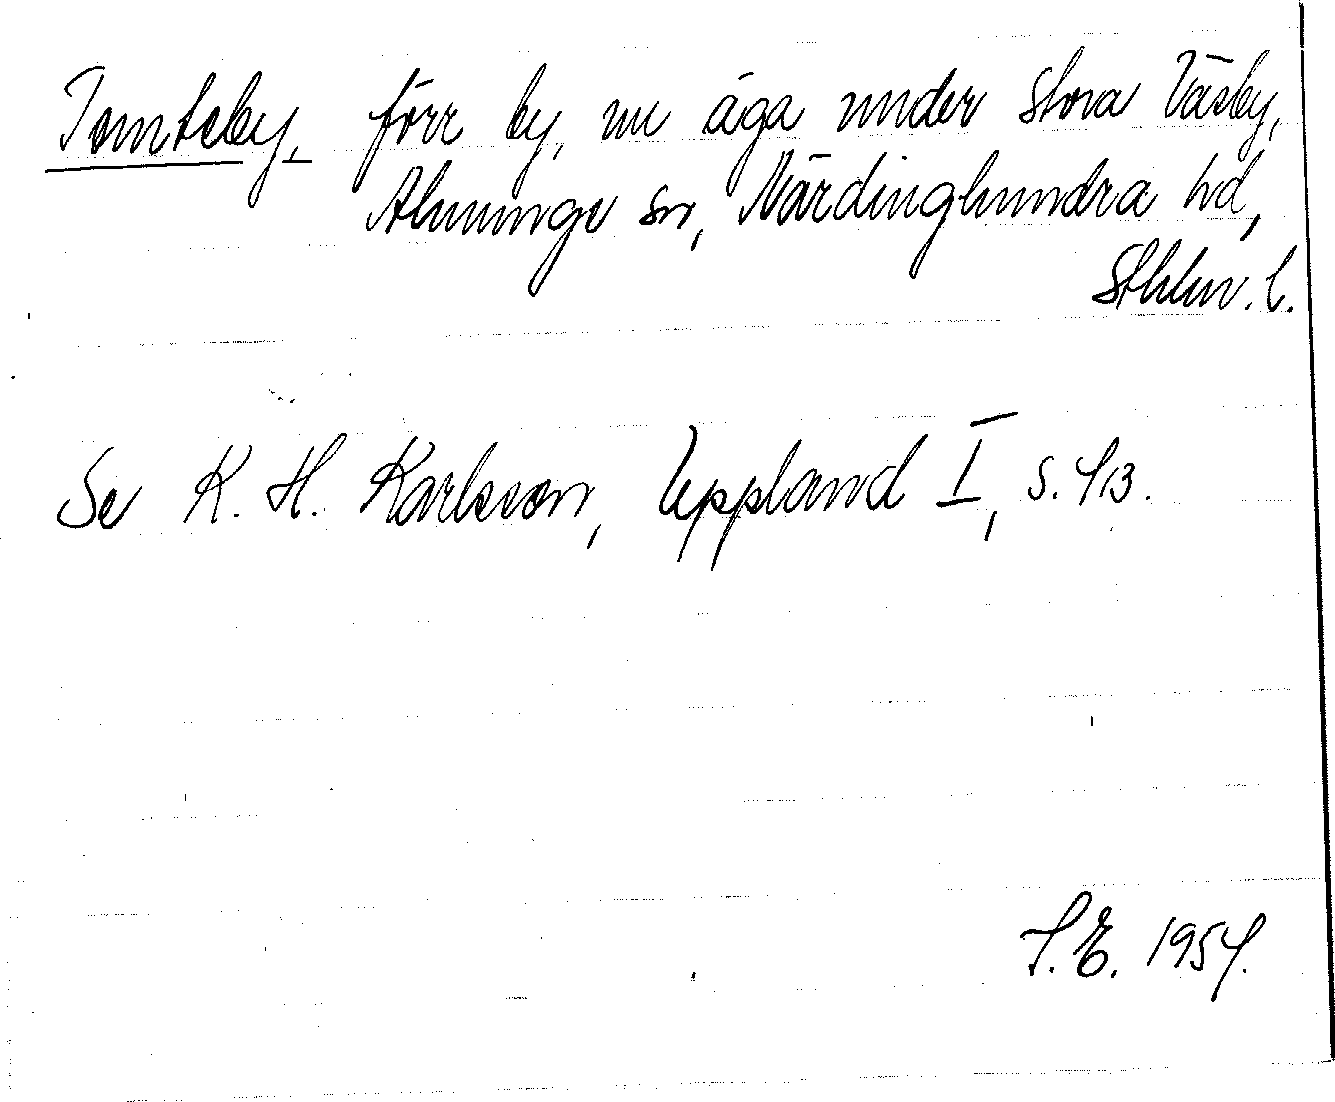 Tomteby, förr by, nu äga under Stora Väsby,
Almunge sn, Närdinghundra hd,
Sthlm. l.
Se K. H. Karlsson, Uppland I, s. 43.
S.E. 1954.